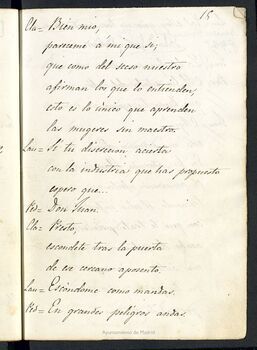 15
Cla= Bien mio,
pareceme á mi que si;
que como del secso nuestro
afirman los que lo entienden,
esto es lo único que aprenden
las mugeres sin maestro.
Lau= Si tu discrecion acierta
con la industria que has propuesto
espero que...
Ped= Don Juan.
Cla= Presto,
escondete tras la puerta
de ese cercano aposento.
Lau= Escondome como mandas.
Ped= En grandes peligros andas.
Ayuntamiento de Madrid